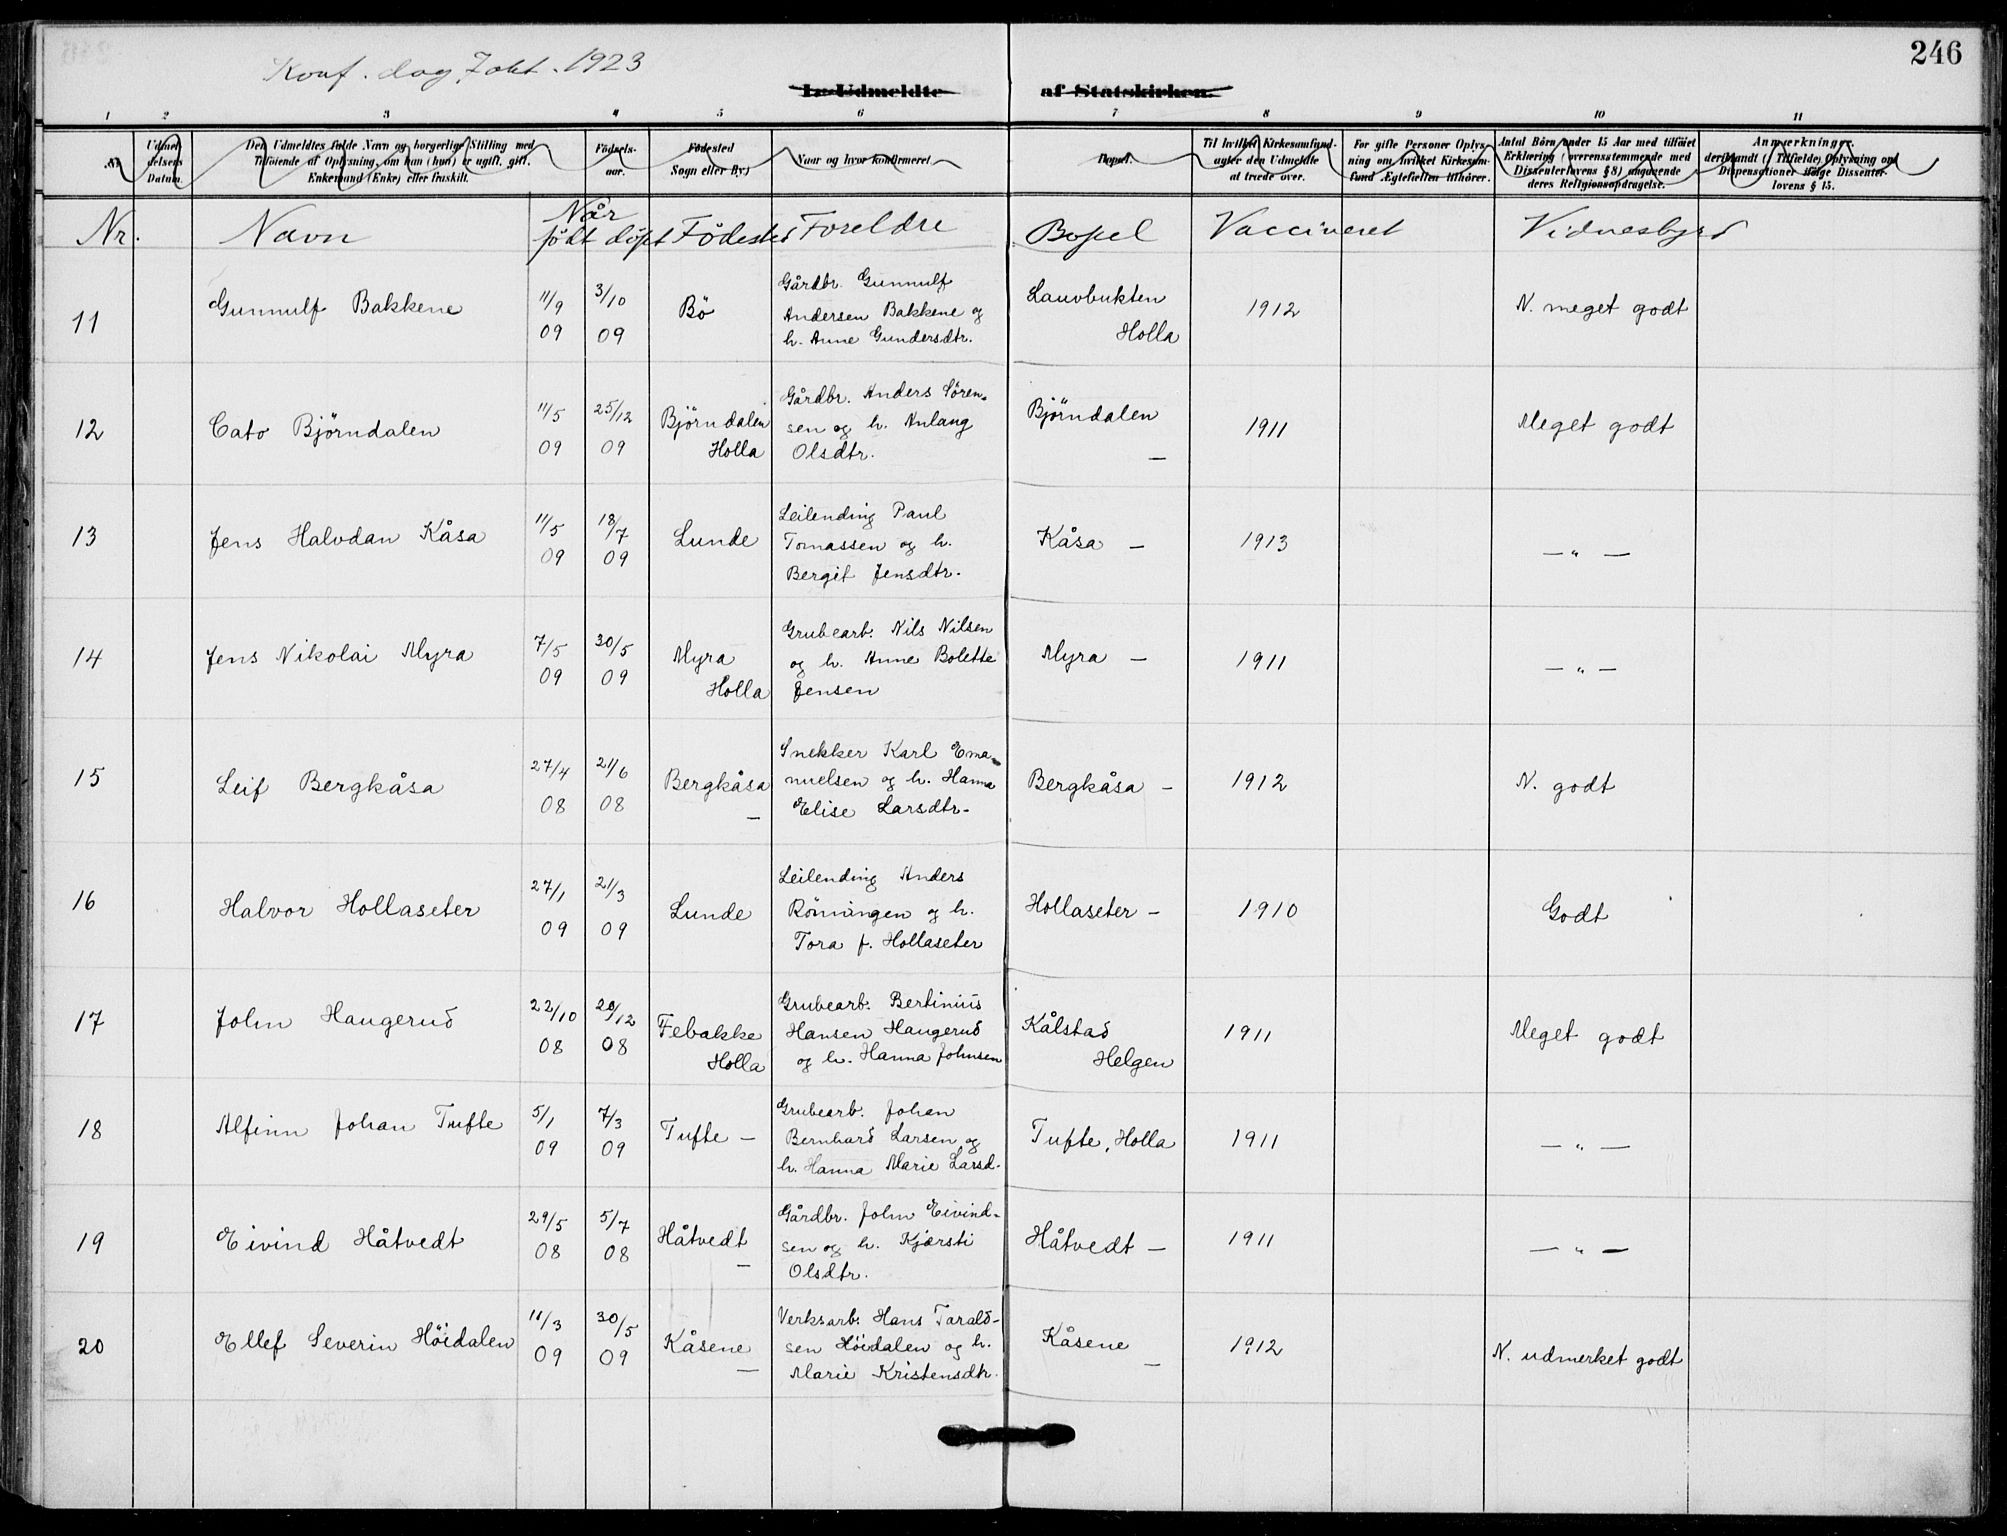 246
Konf. dag 7 okt. 1923
L. Udmeldte af Statskirken.
1 2 3 4 5 6 7 8 9 10 11
Nr. Udmeldelsens Datum. Den Udmeldtes fulde Navn og borgerlige Stilling med Tilføiende af Oplysning, om han (hun) er ugift, gift, Enkemand (Enke) eller fraskilt. Fødselsaar. Fødested Sogn eller By) Naar og hvor konfirmeret Bopæl. Til hvilket Kirkesamfund agter den Udmeldte at træde over. For gifte Personer Oplysning om hvilket Kirkesamfund Ægtefællen tilhører. Antal Børn under 15 Aar med tilføiet Erklæring (overensstemmende med Dissenterlovens § 8) angaaende deres Religionsopdragelse. Anmærkninger, deriblandt (i Tilfælde) Oplysning om Dispensationer ifølge Dissenterlovens § 15.
Nr. Navn Når født døpt Födested Foreldre Bopel Vaccineret Vidnesbyrd
11 Gunnulf Bakkene 11/9 09 3/10 09 Bö Gårdbr. Gunnulf Andersen Bakkene og h. Anne Gundersdtr. Lauvbukten Holla 1912 N. meget godt
12 Cato Björndalen 11/5 09 25/12 09 Björndalen Holla Gårdbr. Anders Sörensen og h. Anlaug Olsdtr. Björndalen — 1911 Meget godt
13 Jens Halvdan Kåsa 11/5 09 18/7 09 Lunde Leilending Paul Tomassen og h. Bergit Jensdtr. Kåsa — 1913 — " —
14 Jens Nikolai Myra 7/5 09 30/5 09 Myra Holla Grubearb. Nils Nilsen og h. Anne Bolette Jensen Myra — 1911 — " —
15 Leif Bergkåsa 27/4 08 21/6 08 Bergkåsa — Snekker Karl Emanuelsen og h. Hanna Elise Larsdtr. Bergkåsa — 1912 N. godt
16 Halvor Hollaseter 27/1 09 21/3 09 Lunde Leilending Anders Römingen og h. Tora f. Hollaseter Hollaseter — 1910 Godt
17 John Haugerud 22/10 08 20/12 08 Febakke Holla Grubearb. Bertinius Hansen Haugerud og h. Hanna Johnsen Kålstad Helgen 1911 Meget godt
18 Alfinn Johan Tufte 5/1 09 7/3 09 Tufte — Grubearb. Johan Bernhard Larsen og h. Hanna Marie Larsd. Tufte, Holla 1911 — " —
19 Eivind Håtvedt 29/5 08 5/7 08 Håtvedt — Gårdbr. John Eivindsen og h. Kjærsti Olsdtr. Håtvedt — 1911 — " —
20 Ellef Severin Höidalen 11/3 09 30/5 09 Kåsene — Verksarb. Hans Taraldsen Höidalen og h. Marie Kristensdtr. Kåsene — 1912 N. udmerket godt